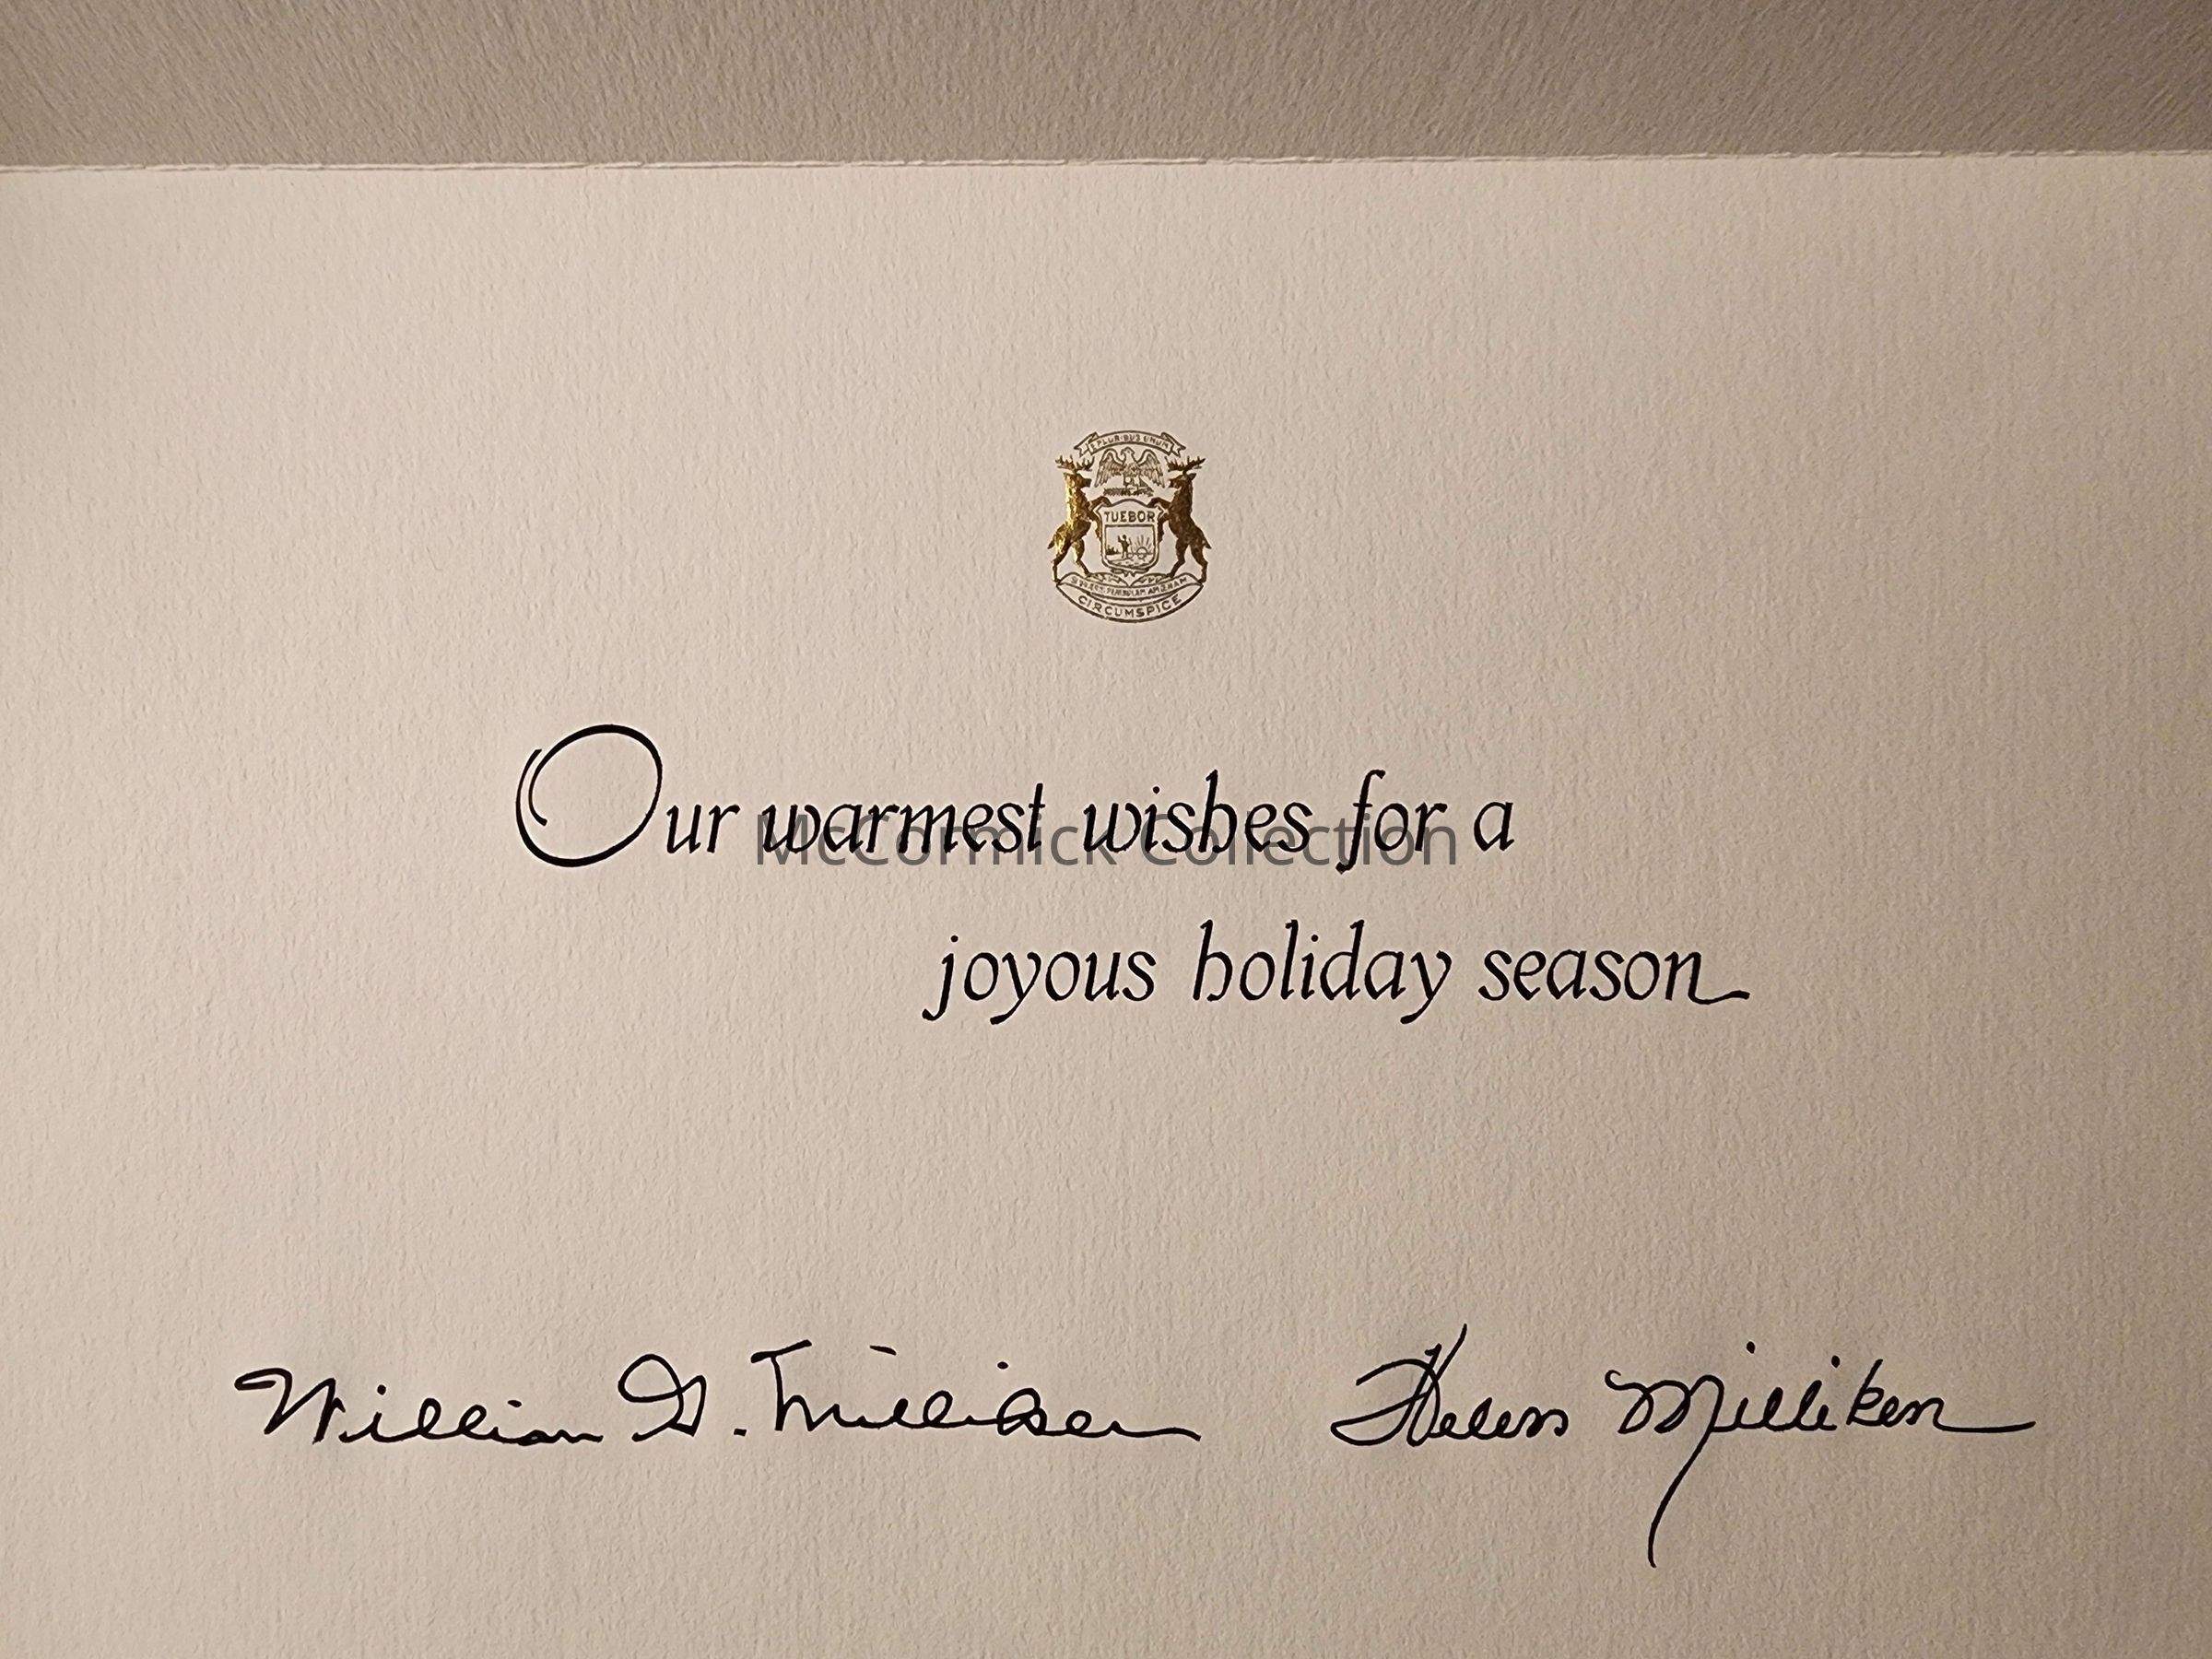 E PLURIBUS UNUM
TUEBOR
CIRCUMSPICE
Our warmest wishes for a
McCormick Collection
joyous holiday season
William G. Milliken Helen Milliken